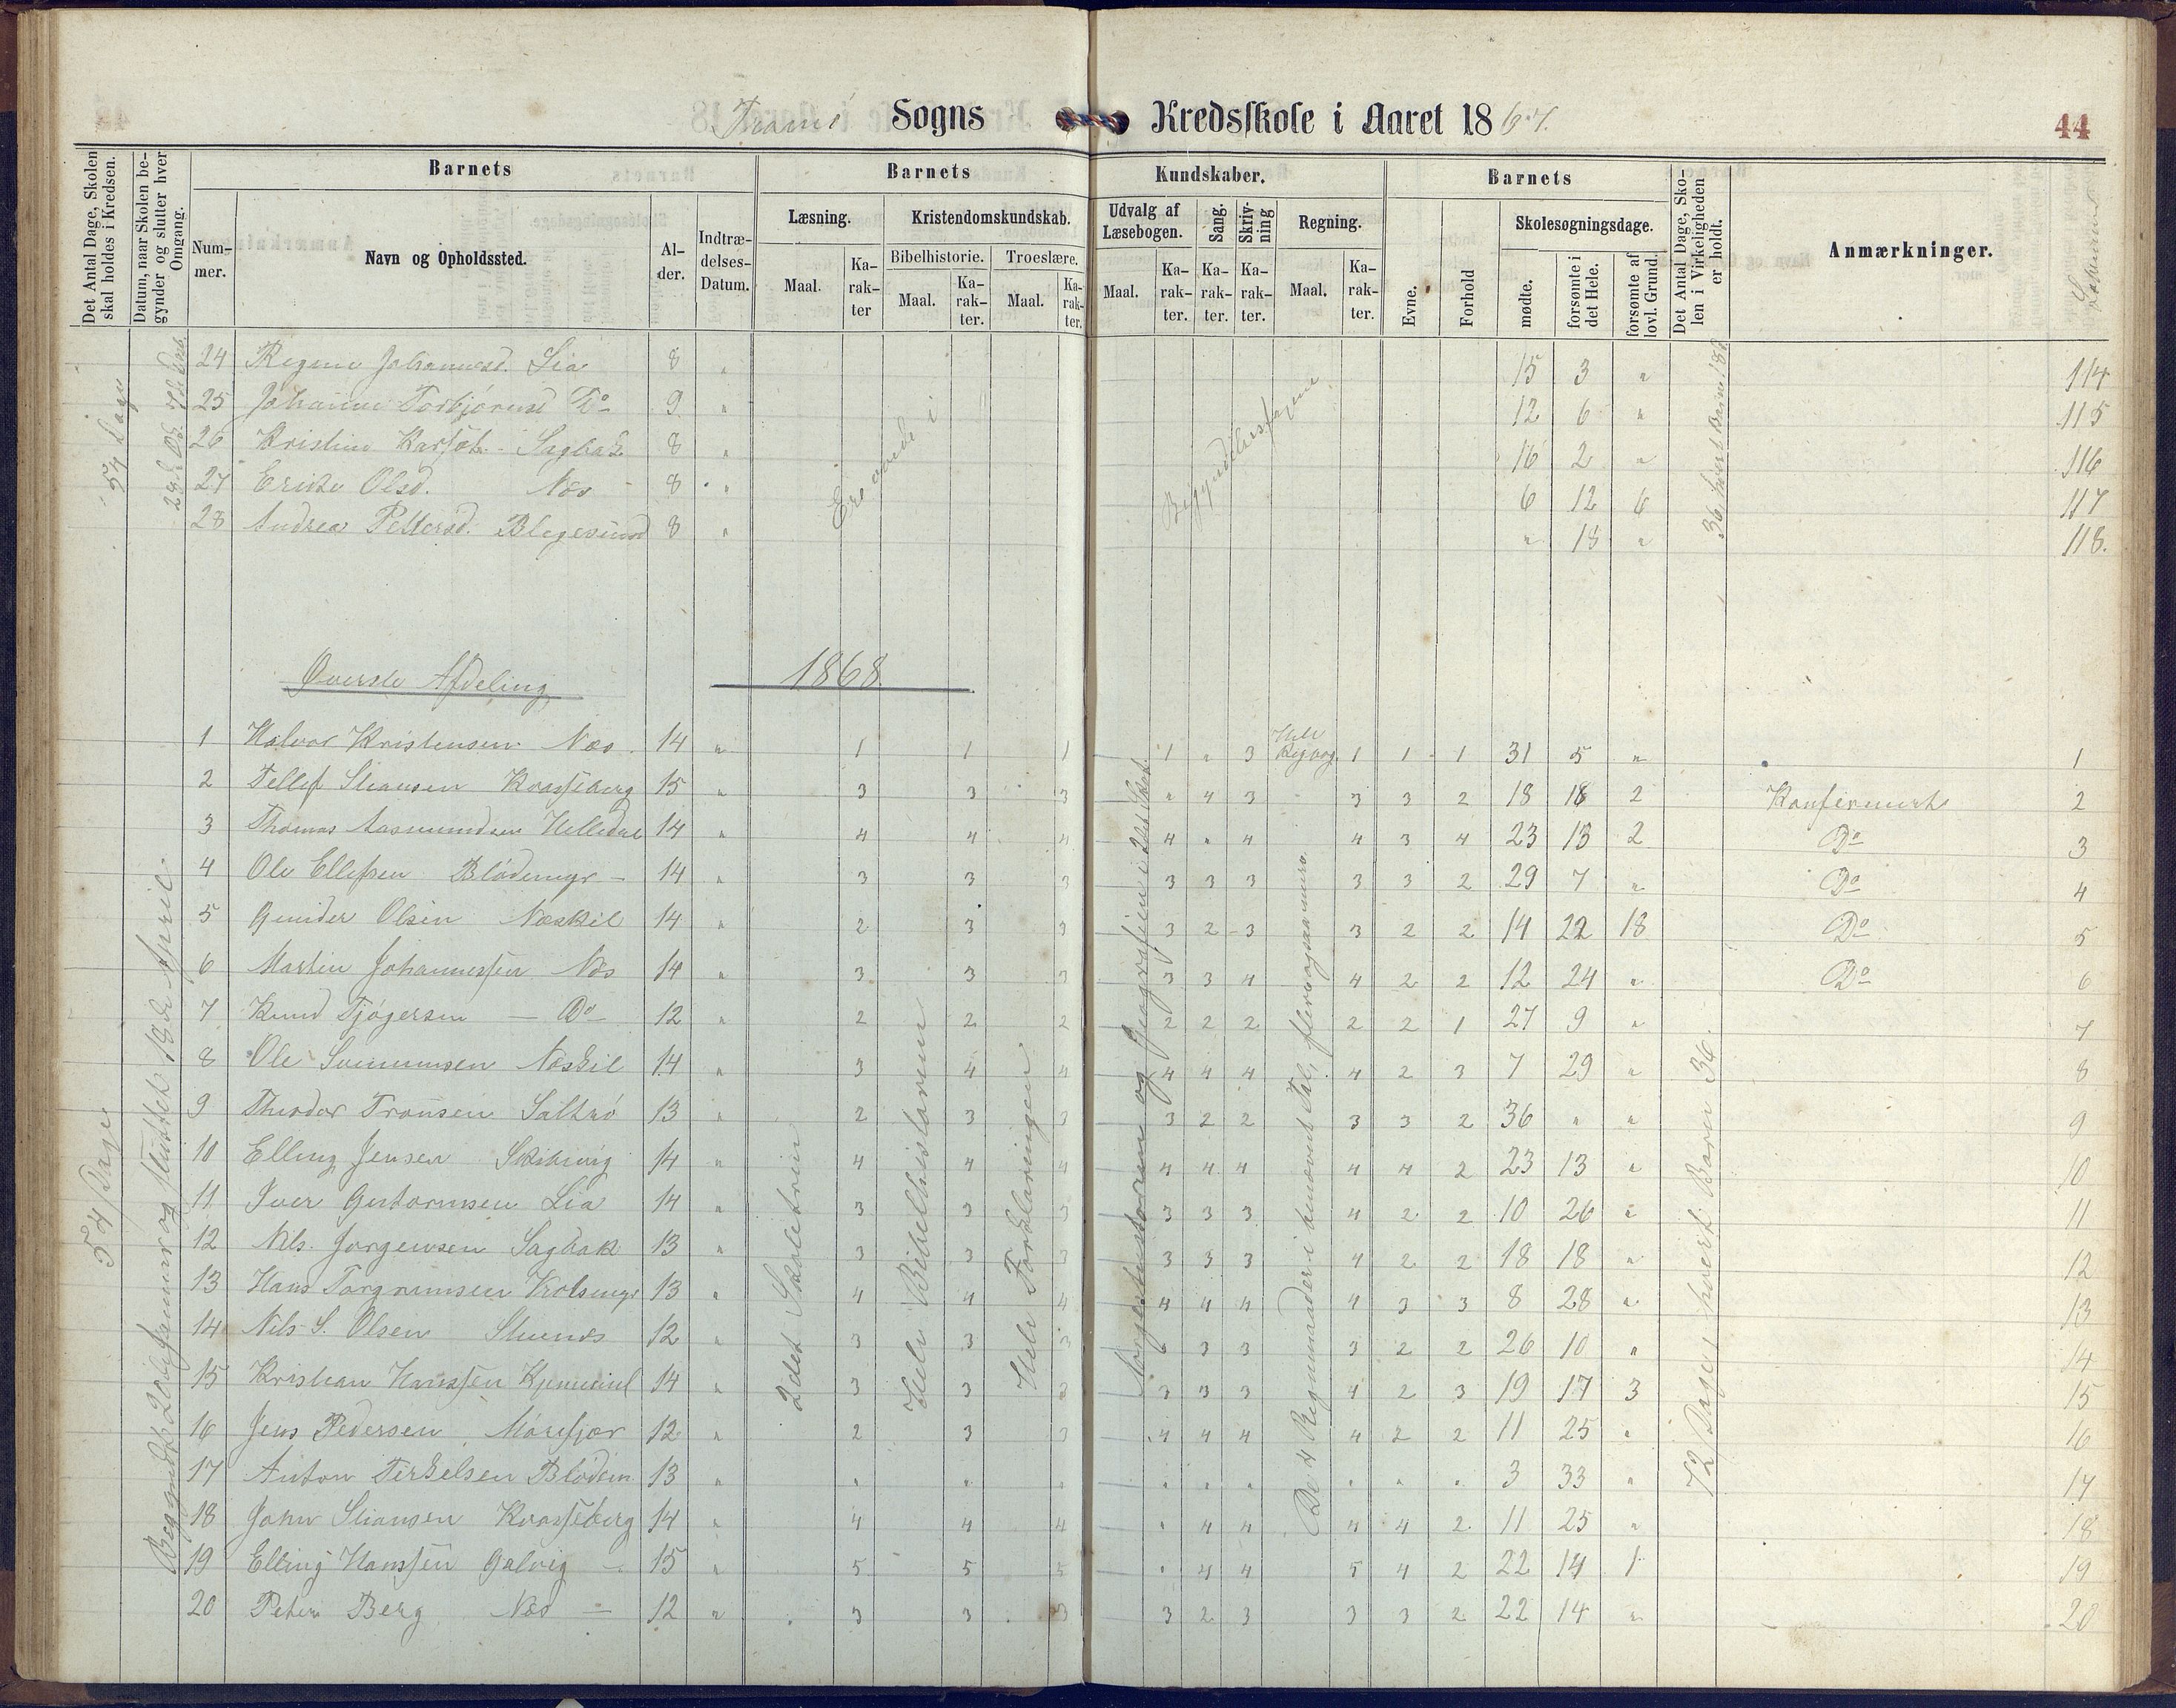 Tromö Sogns Kredsskole i Aaret 1867.
44
Det Antal Dage, Skolen skal holdes i Kredsen.
Datum, naar Skolen begynder og slutter hver Omgang.
Barnets
Nummer.
Navn og Opholdssted.
Alder.
Indtrædelses-Datum.
Barnets Kundskaber.
Læsning.
Maal.
Karakter
Kristendomskundskab.
Bibelhistorie.
Maal.
Karakter.
Troeslære.
Maal.
Karakter.
Udvalg af Læsebogen.
Maal.
Karakter.
Sang.
Karakter.
Skrivning
Karakter.
Regning.
Maal.
Karakter.
Barnets
Evne.
Forhold
Skolesøgningsdage.
mødte.
forsømte i det Hele.
forsømte af lovl. Grund.
Det Antal Dage, Skolen i Virkeligheden er holdt.
Anmærkninger.
54 Dage
Ere endnu i Begyndelsesfagene
24 Regine Johannesd. Lia 8 " 15 3 " 114
25 Johanne Torbjörnsd Do 9 " 12 6 " 115
26 Kristine Sagbak 8 " 16 2 " 116
27 Olsd. Næs 8 " 6 12 6 117
28 Andrea Pettersd. 8 " " 18 " 118.
Øverste Afdeling 1868
54 Dage
Begyndte 20de Januar og sluttet 18de April.
2det Skoletrin
Hele Bibelhistorien
Hele Forklaringen
Norgeshistorien og Geografien i 2det Skol.
De 4 Regnemaader i benævnt Tal, flere ogsaa
72 Dage, hvert Barn 36.
1 Halvor Kristensen Næs 14 " 1 1 1 1 " 3 Hele Regning 1 1 1 31 5 " 1
2 Tellef Stiansen 15 " 3 3 3 " 4 3 3 3 2 18 18 2 Konfirmerte 2
3 Thomas Aasmundsen Helledal 14 " 4 4 4 4 " 4 4 3 4 23 13 2 Do 3
4 Ole Ellefsen Blödemyr 14 " 3 3 3 3 3 3 3 3 2 29 7 " Do 4
5 Olsen Næskil 14 " 2 3 3 3 2 3 3 2 2 14 22 18 Do 5
6 Martin Johannessen Næs 14 " 3 3 3 3 3 4 4 2 2 12 24 " Do 6
7 Knud Tjögersen Do 12 " 2 2 2 2 2 2 2 2 1 27 9 " 7
8 Ole Næskil 14 " 3 4 4 4 4 4 4 2 3 7 29 " 8
9 Theodor Tronsen Saltrö 13 " 2 3 3 3 2 2 3 3 2 36 " " 9
10 Elling Jensen 14 " 4 4 4 4 4 4 4 4 2 23 13 " 10
11 Iver Guttormsen Lia 14 " 3 3 3 3 3 3 4 2 2 10 26 " 11
12 Nils Jørgensen Sagbak 13 " 3 3 3 3 3 3 4 2 2 18 18 " 12
13 Hans Torgrimsen 13 " 4 4 4 4 4 4 4 3 3 8 28 " 13
14 Nils S. Olsen 12 " 3 3 3 3 3 3 2 2 26 10 " 14
15 Kristian Hanssen 14 " 3 3 3 3 3 3 4 2 3 19 17 3 15
16 Jens Pedersen Mörefjær 12 " 2 3 3 4 4 4 4 2 2 11 25 " 16
17 Anton Terkelsen Blödem 13 " " " " " " " " " " 3 33 " 17
18 John Stiansen 14 " 4 4 4 " 4 4 4 4 2 11 25 " 18
19 Elling Hanssen Galvig 15 " 5 5 5 " 4 4 5 4 2 22 14 1 19
20 Peter Berg Næs 12 " 3 3 3 3 2 3 3 3 2 22 14 " 20